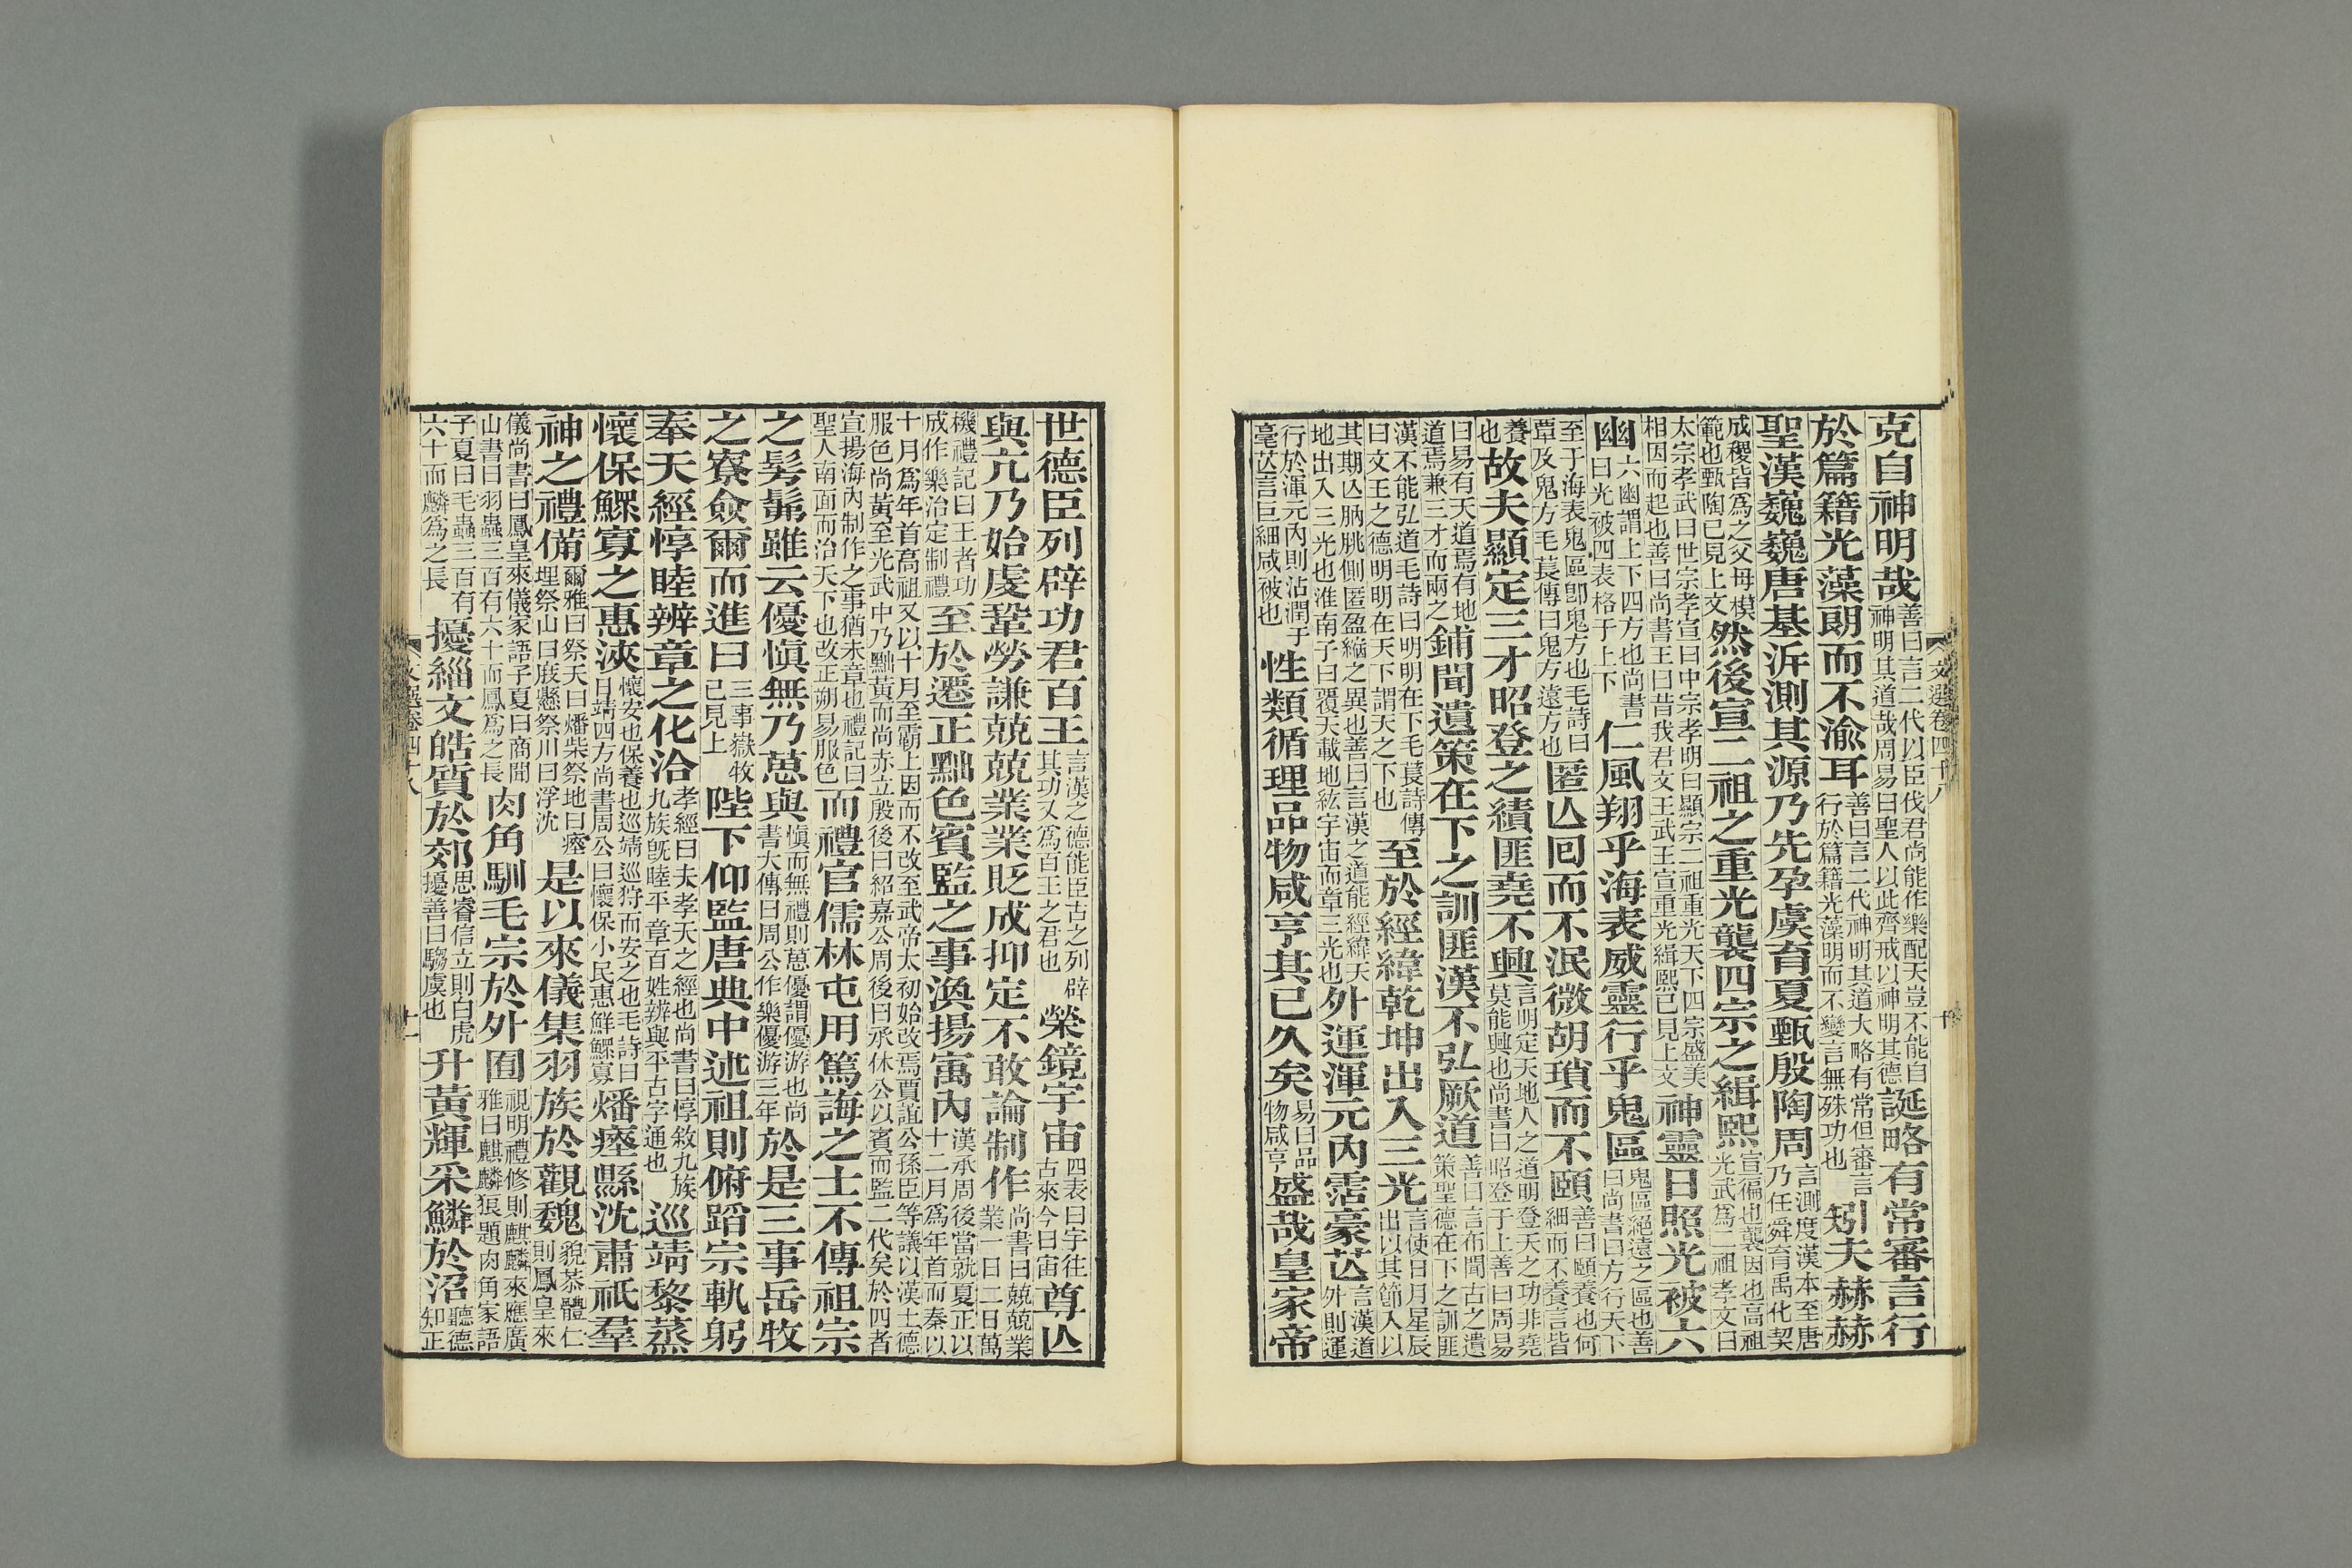 克自神明哉善曰言二代以臣伐君尚能作樂配天豈不能自神明其道哉周易曰聖人以此齊戒以神明其德誕略有常審言行
於篇籍光藻朗而不渝耳善曰言二代神明其道大略有常但審言行於篇籍光藻明而不變言無殊功也矧夫赫赫
聖漢巍巍唐基泝測其源乃先孕虞育夏甄殷陶周言測度漢本至唐乃任舜育禹化契
成稷皆爲之父母模範也甄陶已見上文然後宣二祖之重光襲四宗之緝熙宣徧也襲因也高祖光武爲二祖孝文曰
太宗孝武曰世宗孝宣曰中宗孝明曰顯宗二祖重光天下四宗盛美相因而起也善曰尚書王曰昔我君文王武王宣重光緝熙已見上文神靈日照光被六
幽六幽謂上下四方也尚書曰光被四表格于上下仁風翔乎海表威靈行乎鬼區鬼區絕遠之區也善曰尚書曰方行天下
至于海表鬼區卽鬼方也毛詩曰覃及鬼方毛萇傳曰鬼方遠方也匿亾囘而不泯微胡瑣而不頤善曰頤養也何細而不養言皆
養也故夫顯定三才昭登之績匪堯不興言明定天地人之道明登天之功非堯莫能興也尚書曰昭登于上善曰周易
曰易有天道焉有地道焉兼三才而兩之鋪聞遺策在下之訓匪漢不弘厥道善曰言布聞古之遺策聖德在下之訓匪
漢不能弘道毛詩曰明明在下毛萇詩傳曰文王之德明明在天下謂天之下也至於經緯乾坤出入三光言使日月星辰出以其節入以
其期亾朒朓側匿盈縮之異也善曰言漢之道能經緯天地出入三光也淮南子曰覆天載地紘宇宙而章三光也外運渾元內霑豪芒言漢道外則運
行於渾元內則沾潤于毫芒言巨細咸被也性類循理品物咸亨其已久矣易曰品物咸亨盛哉皇家帝
文選卷四十八 十
世德臣列辟功君百王言漢之德能臣古之列辟其功又爲百王之君也榮鏡宇宙四表曰宇往古來今曰宙尊亾
與亢乃始虔鞏勞謙兢兢業業貶成抑定不敢論制作尚書曰兢兢業業一日二日萬
機禮記曰王者功成作樂治定制禮至於遷正黜色賓監之事渙揚寓內漢承周後當就夏正以十二月爲年首而秦以
十月爲年首高祖又以十月至霸上因而不改至武帝太初始改焉賈誼公孫臣等議以漢土德服色尚黃至光武中乃黜黃而尚赤立殷後曰紹嘉公周後曰承休公以賓而監二代矣於四者
宣揚海內制作之事猶未章也禮記曰聖人南面而治天下也改正朔易服色而禮官儒林屯用篤誨之士不傳祖宗
之髣髴雖云優愼無乃葸與愼而無禮則葸優謂優游也尚書大傳曰周公作樂優游三年於是三事岳牧
之寮僉爾而進曰三事嶽牧已見上陛下仰監唐典中述祖則俯蹈宗軌躬
奉天經惇睦辨章之化洽孝經曰夫孝天之經也尚書曰惇敘九族九族旣睦平章百姓辨與平古字通也巡靖黎蒸
懷保鰥寡之惠浹懷安也保養也巡靖巡狩而安之也毛詩曰日靖四方尚書周公曰懷保小民惠鮮鰥寡燔瘞縣沈肅祇羣
神之禮備爾雅曰祭天曰燔柴祭地曰瘞埋祭山曰庪懸祭川曰浮沈是以來儀集羽族於觀魏貌恭體仁則鳳皇來
儀尚書曰鳳皇來儀家語子夏曰商聞山書曰羽蟲三百有六十而鳳爲之長肉角馴毛宗於外囿視明禮修則麒麟來應廣雅曰麒麟狼題肉角家語
子夏曰毛蟲三百有六十而麟爲之長擾緇文皓質於郊思睿信立則白虎擾善曰騶虞也升黃輝采鱗於沼聽德知正